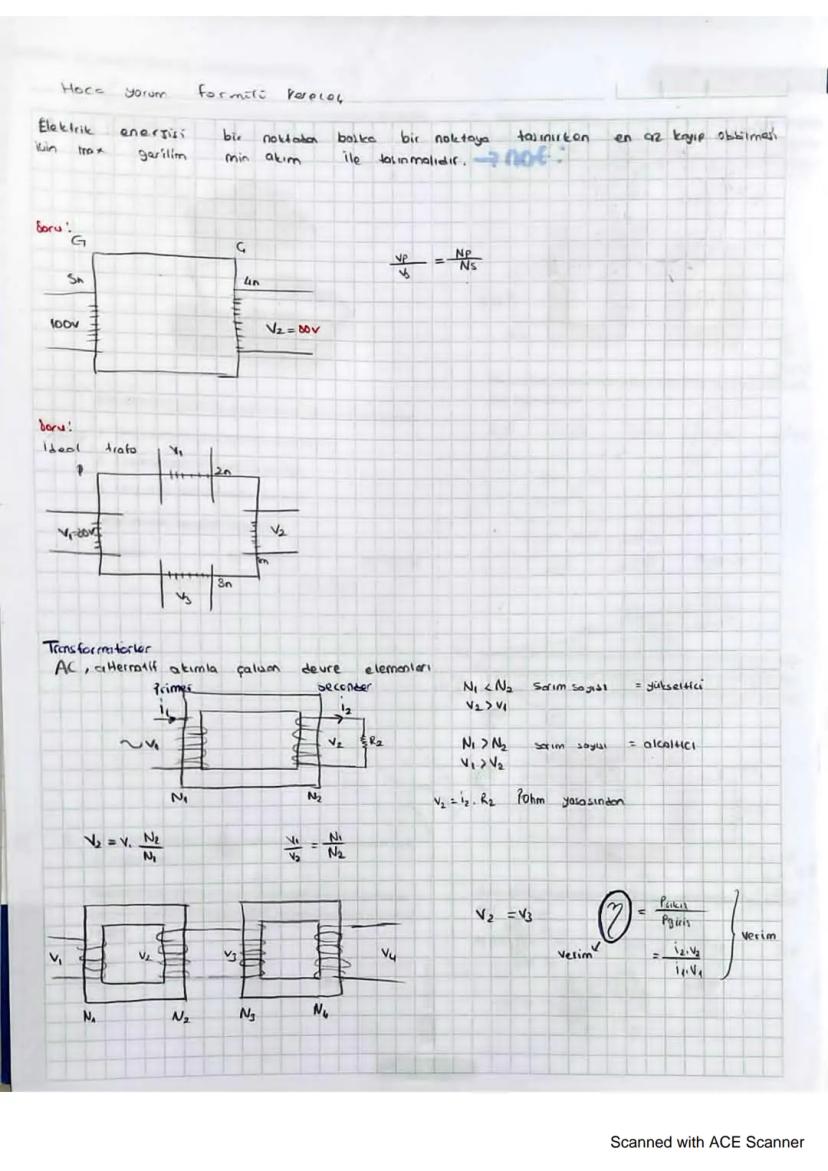 Hoca yorum
Elektrik enerjisi bir noktadan başka bir noktaya taşınırken en az kayıp olabilmesi
için max gerilim min akım ile taşınmalıdır. → not:
Soru:
G
Ç
5n
4n
100V
V2 = 80V
VP/VS = NP/NS
Soru:
Ideal trafo
P
V1
2n
V2
n
V3
3n
Transformatörler
AC, alternatif akımla çalışan devre elemanları
Primer
seconder
i1
i2
~V1
V2
R2
N1
N2
N1 < N2 Sarım sayısı = yükseltici
V2 > V1
N1 > N2 sarım sayısı = alçaltıcı
V1 > V2
V2 = i2 . R2 ohm yasasından
V2 = V1 N2/N1
V1/V2 = N1/N2
V1
V2
V3
V4
N1
N2
N3
N4
V2 = V3
η = Pçıkış/Pgiriş
= i2.V2/i1.V1
verim
verim
Scanned with ACE Scanner